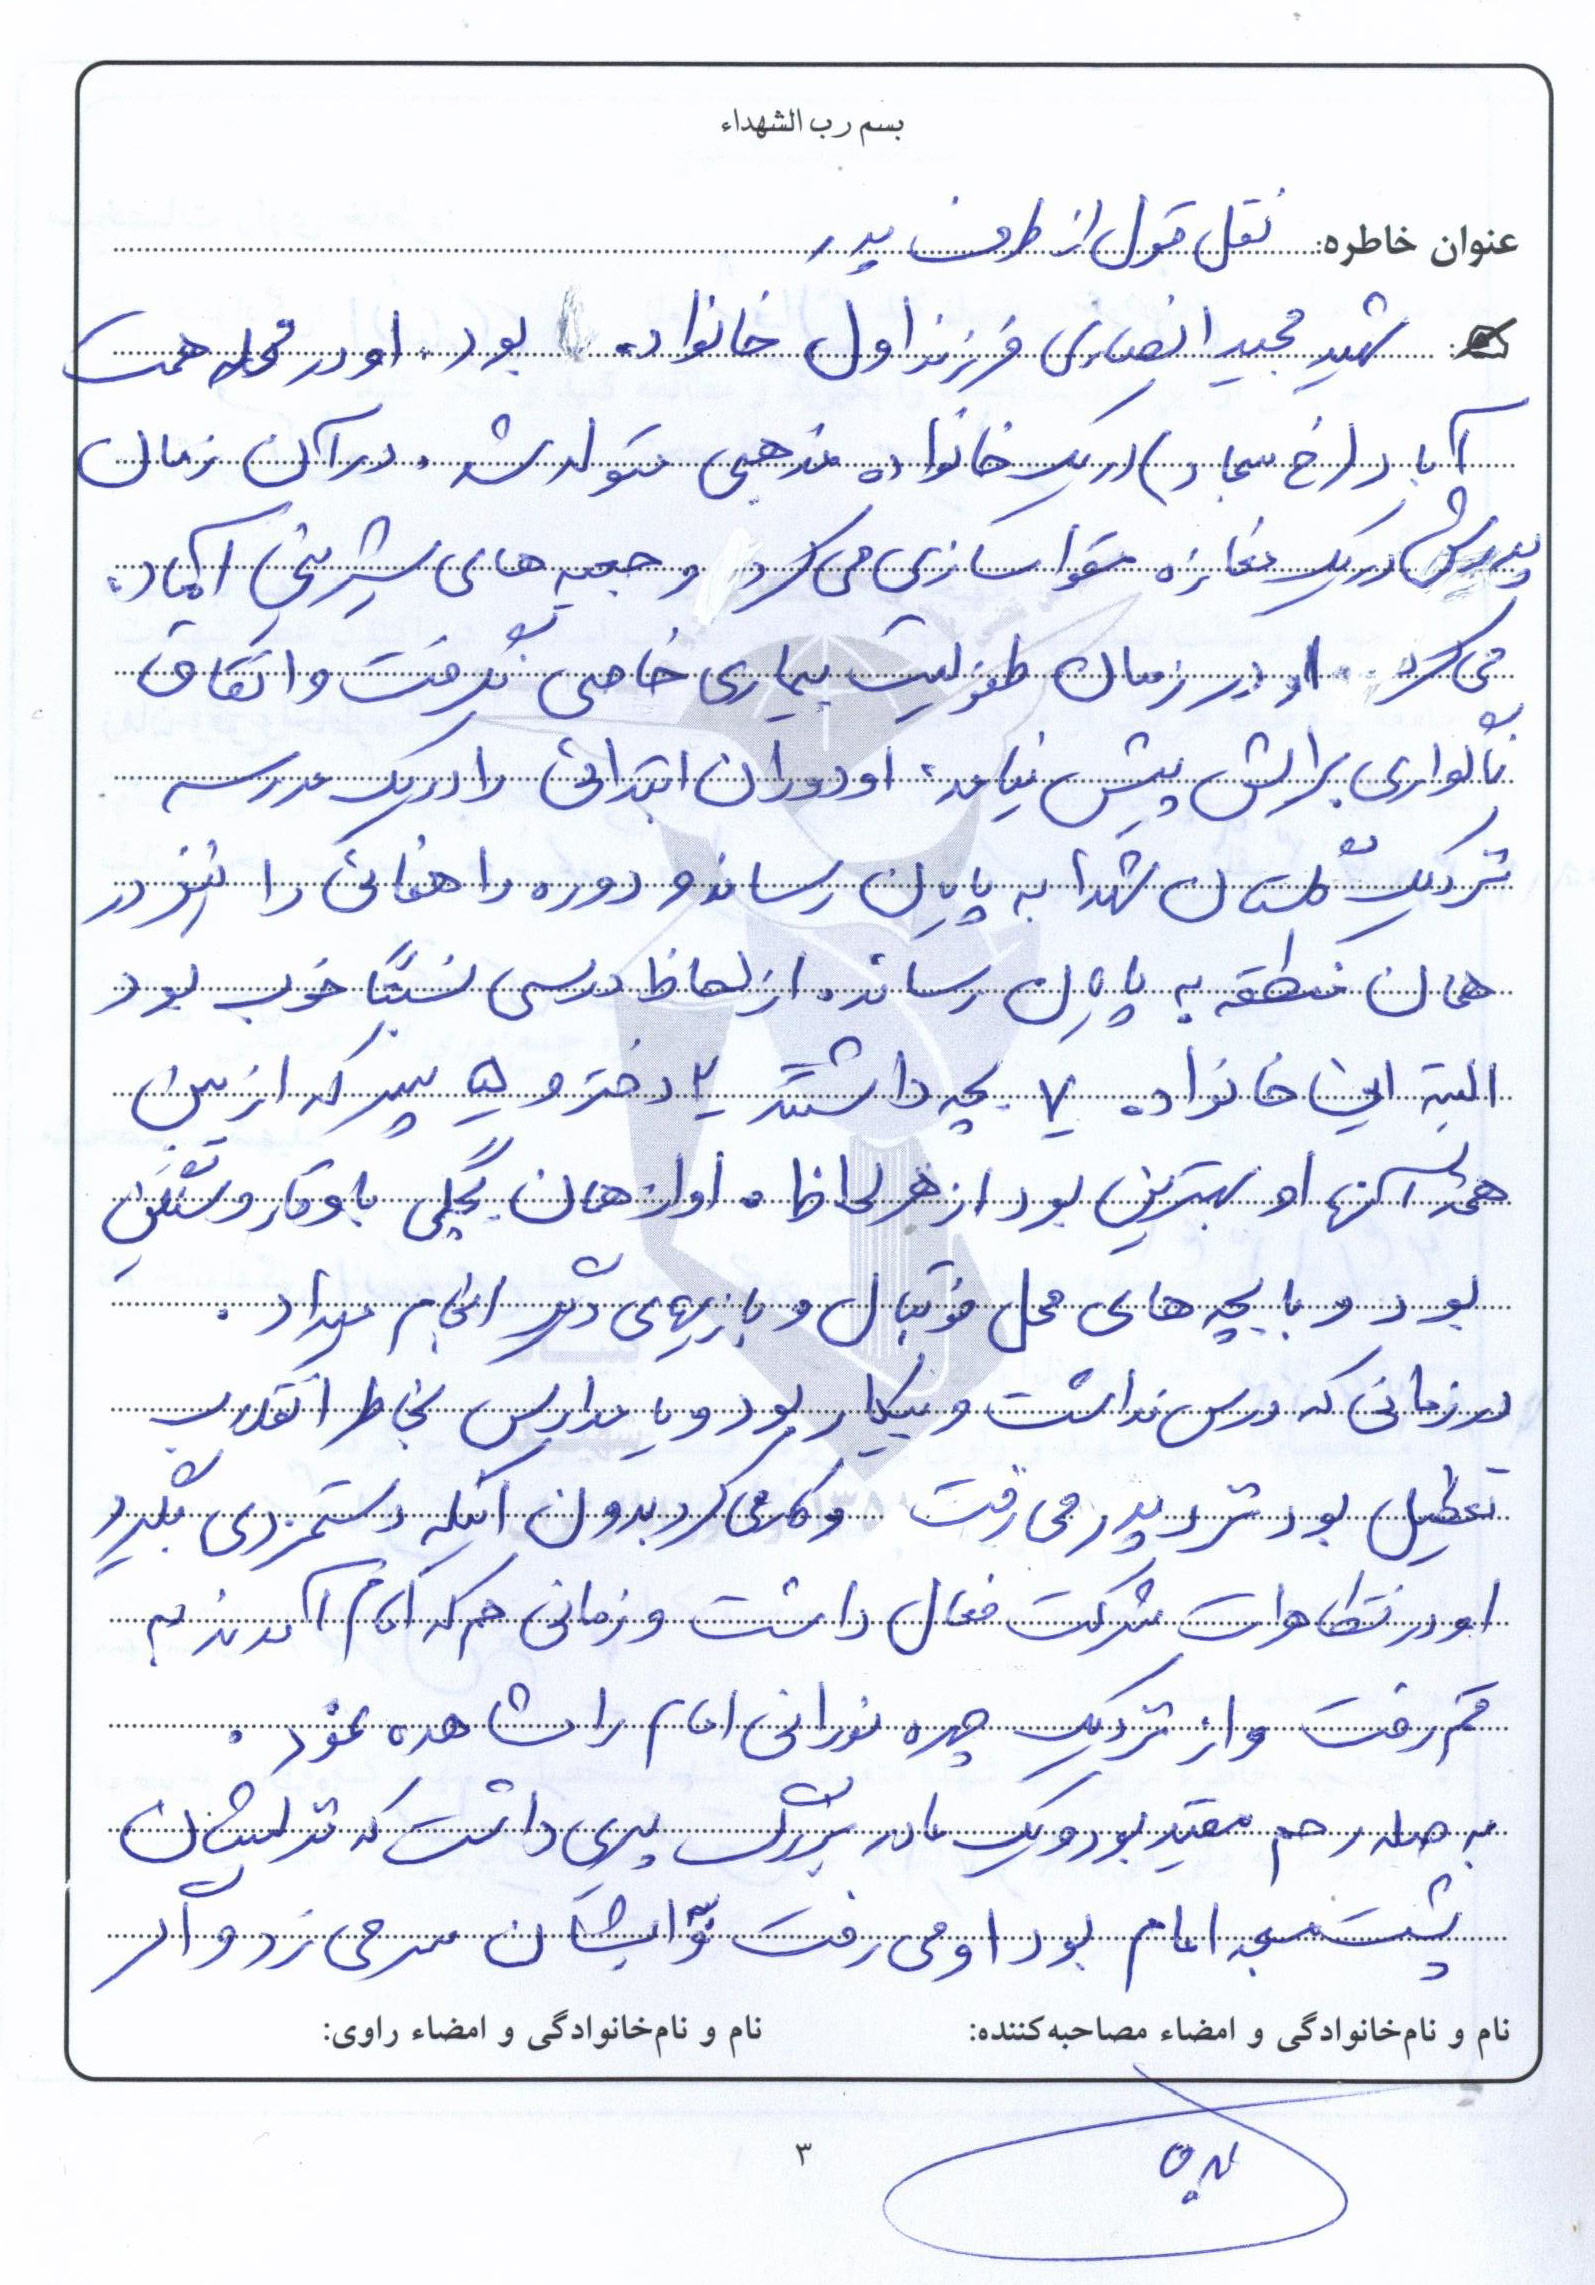 بسم رب الشهداء
عنوان خاطره: نقل قول از طرف پدر
شهید مجید انصاری فرزند اول خانواده بود. او در محله همت
آباد (خ سجاد) در یک خانواده مذهبی متولد شد. در آن زمان
پدرش در یک مغازه مقوا سازی می کرد و جعبه های شیرینی آماده
می کرد. او در زمان طفولیت بیماری خاصی نگرفت و اتفاق
ناگواری برایش پیش نیامد. او دوران ابتدائی را در یک مدرسه
نزدیک گلستان شهدا به پایان رساند و دوره راهنمائی را نیز در
همان منطقه به پایان رساند. از لحاظ درسی نسبتاً خوب بود
البته این خانواده ۷ بچه داشتند ۲ دختر و ۵ پسر که از بین
همه آنها او بهترین بود از هر لحاظ. او از همان بچگی با وقار و سنگین
بود و با بچه های محل فوتبال و بازیهای دیگر انجام میداد.
در زمانی که درس نداشت و بیکار بود و یا مدارس بخاطر انقلاب
تعطیل بود نزد پدر می رفت و کار می کرد بدون اینکه دستمزدی بگیرد
او در تظاهرات شرکت فعال داشت و زمانی هم که امام آمدند به
قم رفت و از نزدیک چهره نورانی امام را مشاهده نمود.
به صله رحم مقید بود و یک مادر بزرگ پیری داشت که منزلشان
پشت مسجد امام بود او می رفت و به ایشان سر می زد و اگر
نام و نام‌خانوادگی و امضاء مصاحبه‌کننده:
نام و نام‌خانوادگی و امضاء راوی:
۳